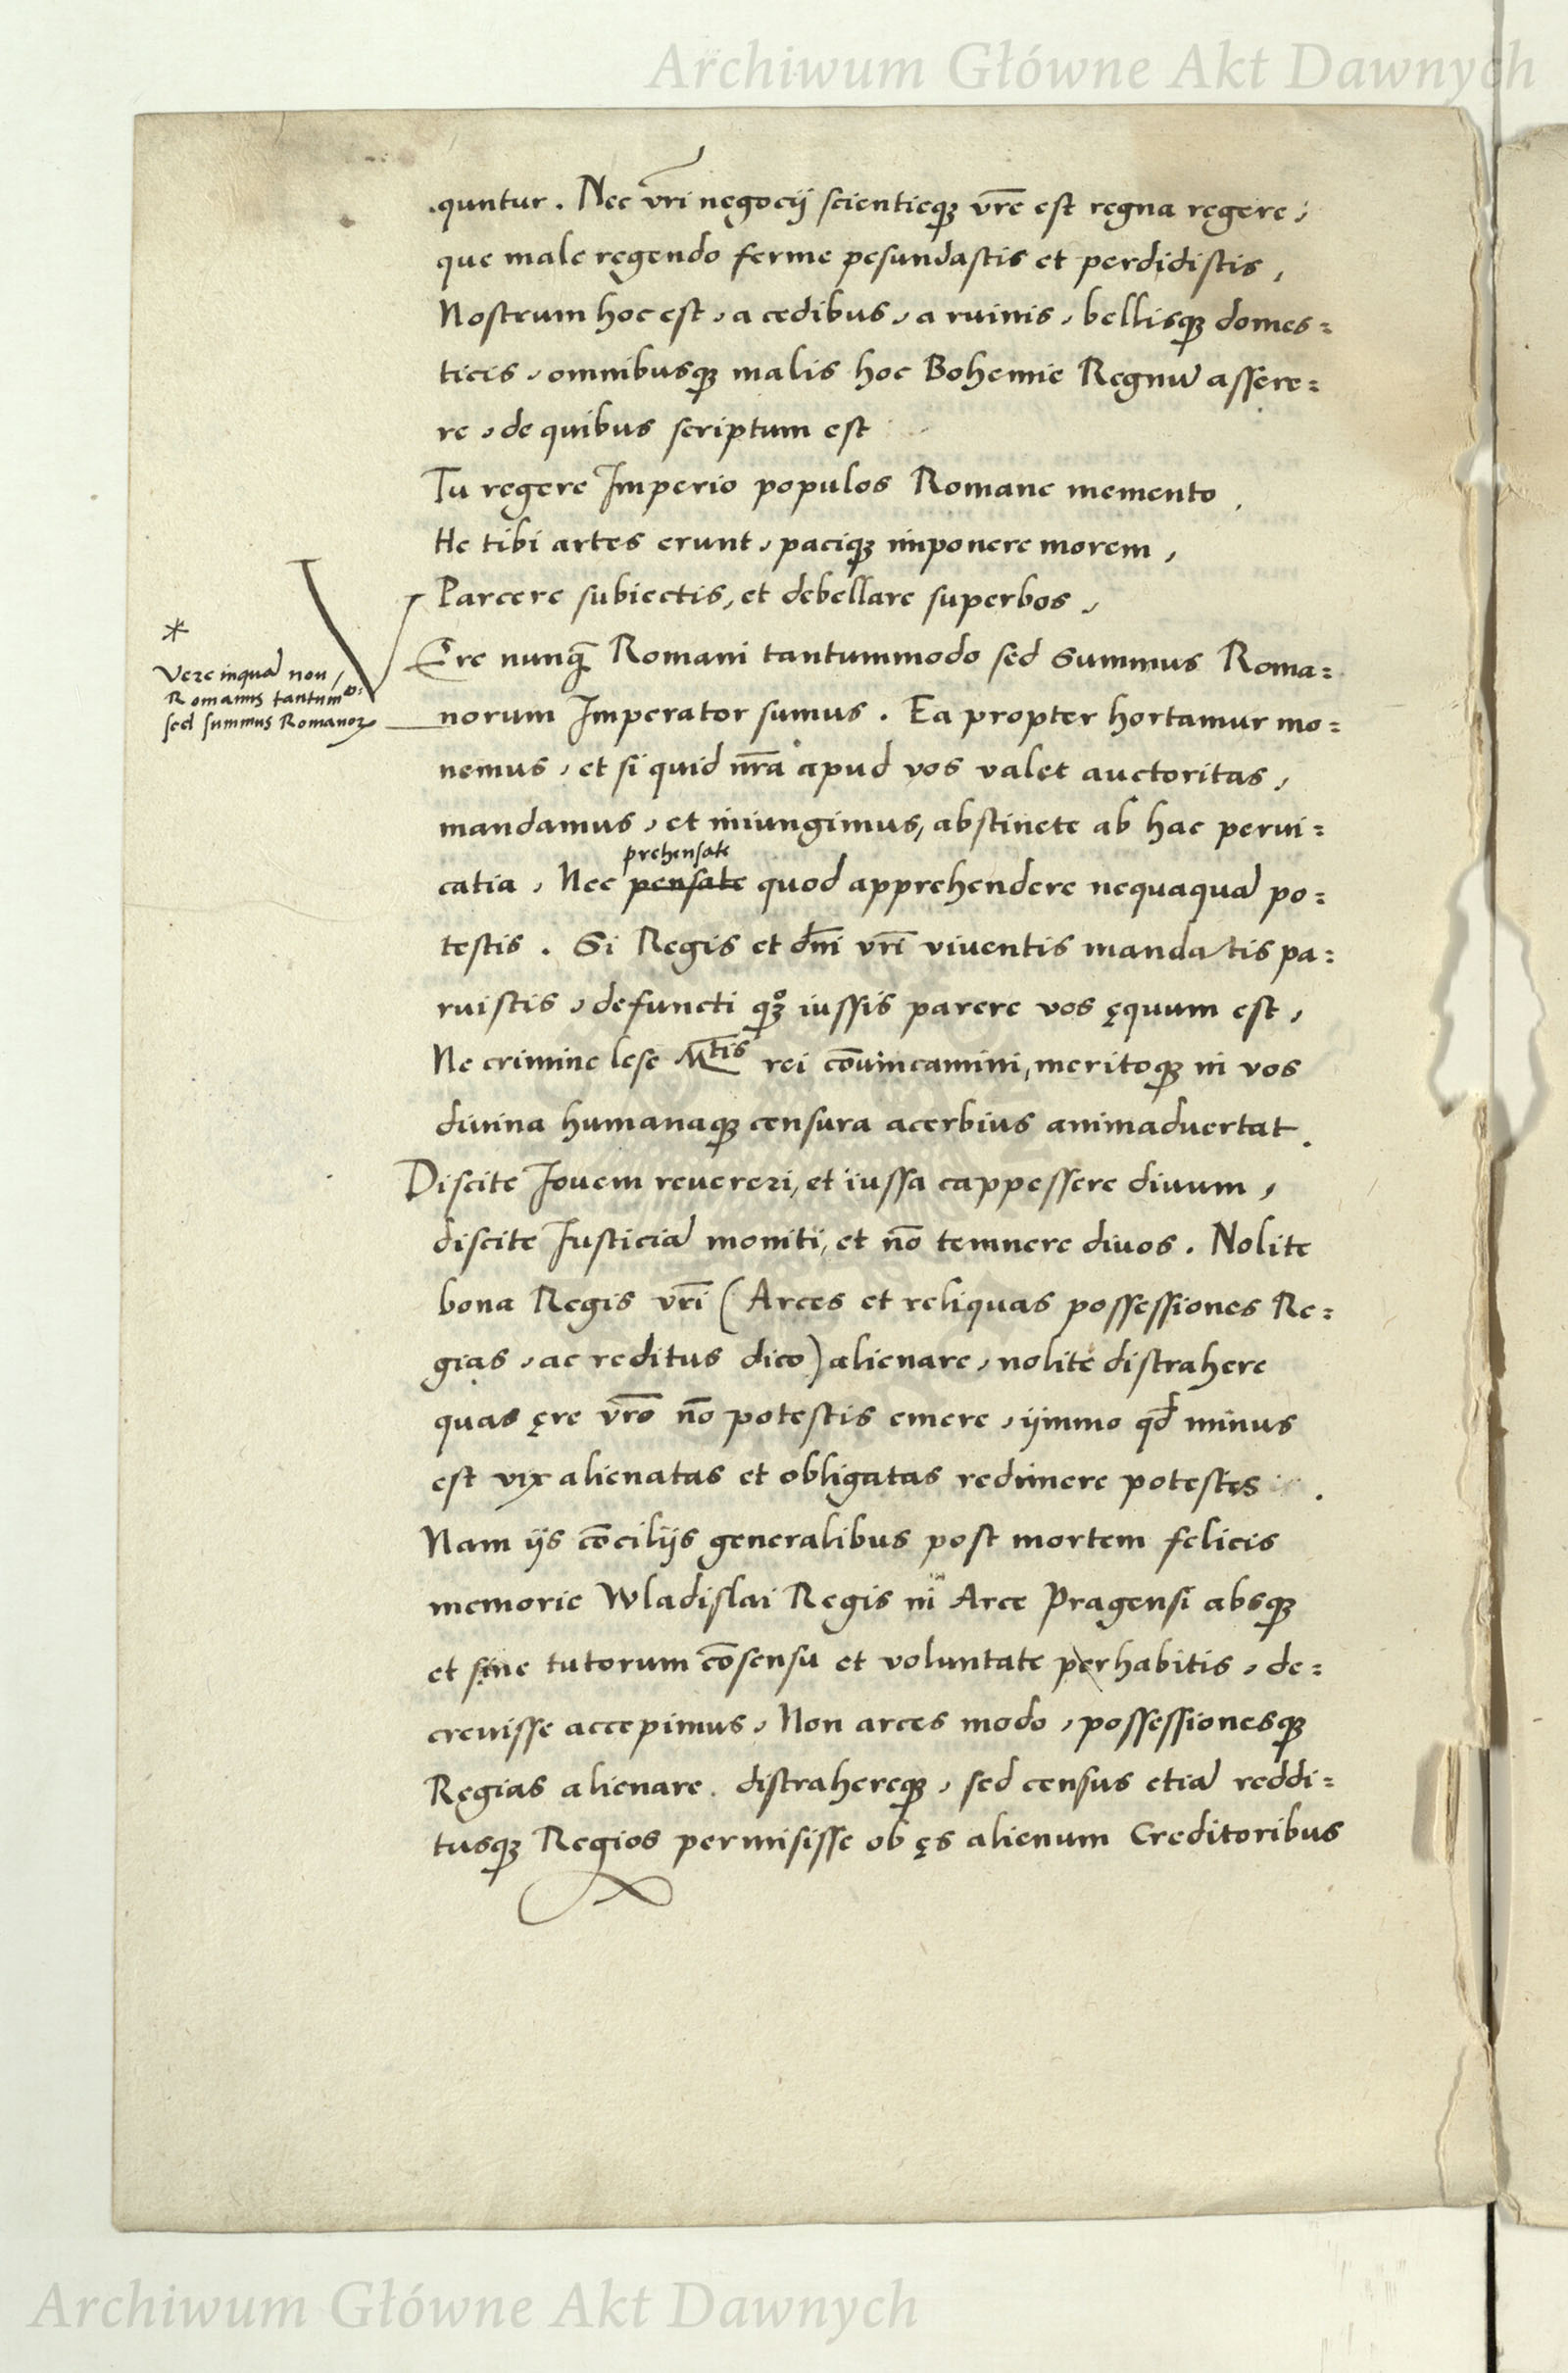 Archiwum Główne Akt Dawnych
quntur. Nec vr̄i negocij scientieqꝫ vr̄e est regna regere,
que male regendo ferme pesundastis et perdidistis,
Nostrum hoc est, a cedibus, a ruinis, bellisqꝫ domes=
ticis, omnibusqꝫ malis hoc Bohemie Regnū assere=
re, de quibus scriptum est
Tu regere Imperio populos Romane memento,
He tibi artes erunt, paciqꝫ imponere morem,
Parcere subiectis, et debellare superbos,
VEre nunq̄ Romani tantummodo sed Summus Roma=
*
Vere inquā non
Romanus tantum o:
sed summus Romanoꝝ
norum Imperator sumus. Ea propter hortamur mo=
nemus, et si quid nr̄a apud vos valet auctoritas,
mandamus, et iniungimus, abstinete ab hac perui=
prehensate
catia, Nec pensate quod apprehendere nequaquā po=
testis. Si Regis et dn̄i vr̄i viuentis mandatis pa=
ruistis, defuncti qꝫo iussis parere vos ęquum est,
Ne crimine lese Mtis rei cōuincamini, meritoqꝫ in vos
diuina humanaqꝫ censura acerbius animaduertat.
Discite Iouem reuereri, et iussa cappessere diuum,
discite Iusticiā moniti, et nō temnere diuos. Nolite
bona Regis vr̄i (Arces et reliquas possessiones Re=
gias, ac reditus dico) alienare, nolite distrahere
quas ęre vr̄o nō potestis emere, ijmmo qd̄ minus
est vix alienatas et obligatas redimere potestis.
Nam ijs cōcilijs generalibus post mortem felicis
memorie Wladislai Regis in Arce Pragensi absqꝫ
et sine tutorum cōsensu et voluntate perhabitis, de=
creuisse accepimus, Non arces modo, possessionesqꝫ
Regias alienare. distrahereqꝫ, sed census etiā reddi=
tusqꝫ Regios permisisse ob ęs alienum Creditoribus
Archiwum Główne Akt Dawnych